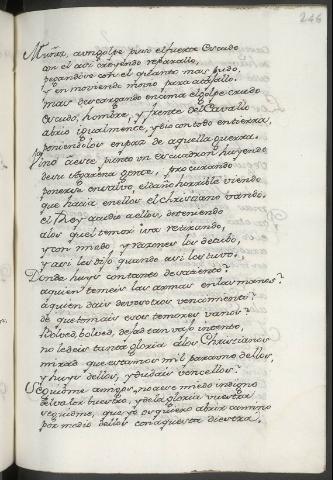 246
Muñoz, aun golpe puso el fuerte Escudo
con el asi creyendo repararllo,
pegandose con el quanto mas pudo,
y en moviendo mano para
mas descargando encima el golpe crudo
Escudo, hombre, y frente del Cavallo
abrio igualmente, y dio con todo en tierra,
poniendolos en paz de aquella guerra.
Vino a este punto un escuadron huyendo
de su gente, procurando
ponerse en salvo, el daño horrible viendo
que hacia en ellos el christiano vando.
el Rey acudio a ellos, deteniendo
a los quel temor iva retirando,
y con miedo, y razones los detubo,
y assi les dijo quando assi los tuvo.
Donde huys con tanto desatiento?
a quien temeis las armas en las manos?
a quien dais de vosotros vencimiento?
de que temais esos temores vanos?
Bolved, bolved, dejad tan vajo intento,
no le deis tanta gloria a los Christianos
mirad que estamos mil para uno dellos,
y huys dellos, y dudais vencellos?
Seguidme amigos, no a ese miedo indigno
el valor buestro, y de la gloria vuestra
seguidme, que yo os quiero abrir camino
por medio dellos con aquesta diestra.